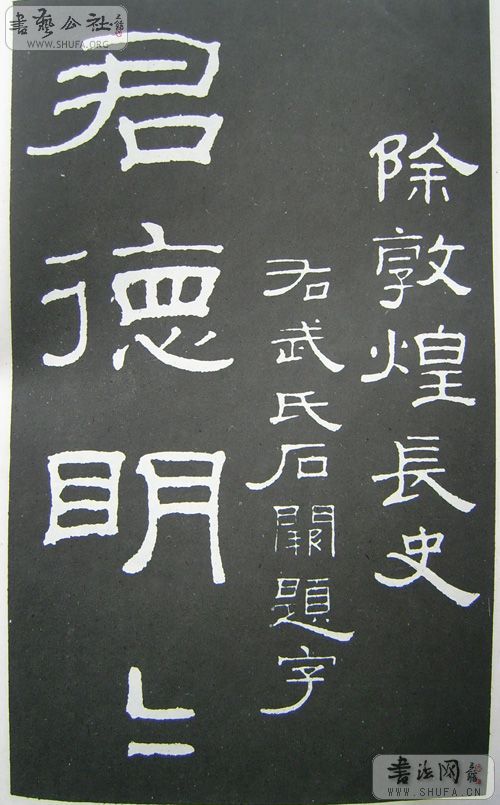 書藝公社
WWW.SHUFA.ORG
除敦煌長史
右武氏石闕題字
君德明
書法网
WWW.SHUFA.CN